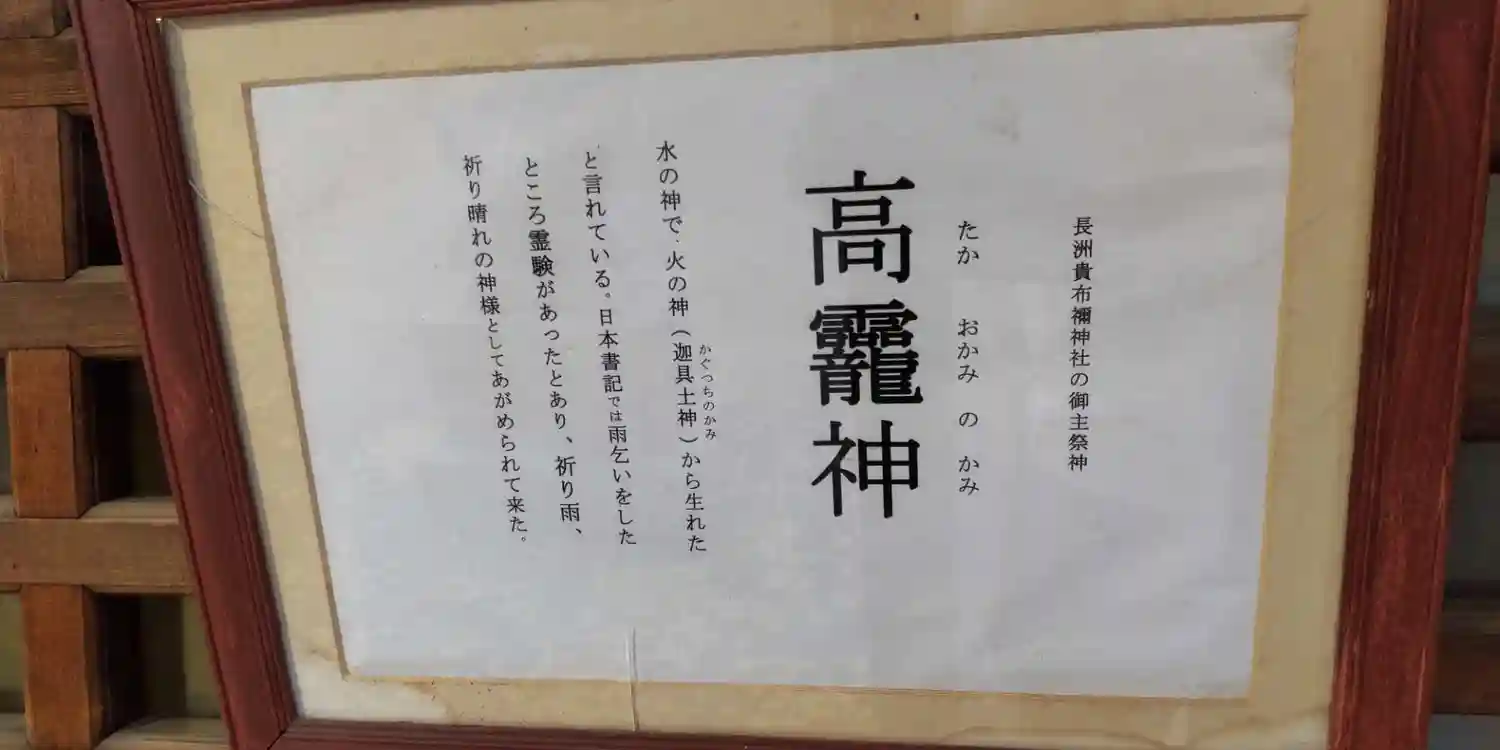 長洲貴布禰神社の御主祭神
たか おかみ の かみ
高龗神
水の神で、火の神(迦具土神)から生れた
かぐつちのかみ
と言れている。日本書記では雨乞いをした
ところ霊験があったとあり、祈り雨、
祈り晴れの神様としてあがめられて来た。